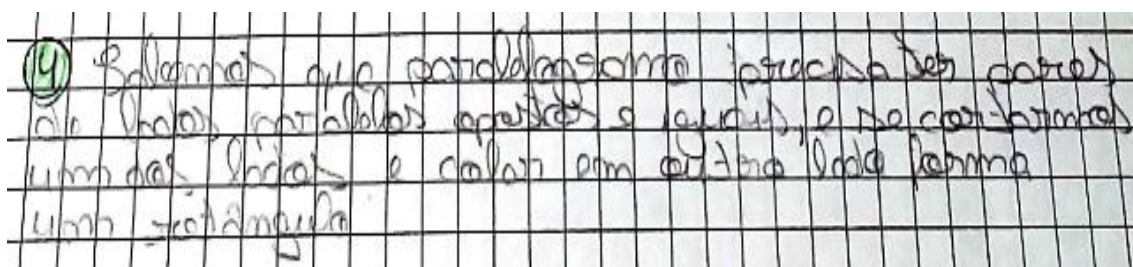 4 Sabemos que paralelogramo precisa ter pares
de lados paralelos opostos e iguais, e se cortarmos
um dos lados e colar em outro lado forma
um retângulo